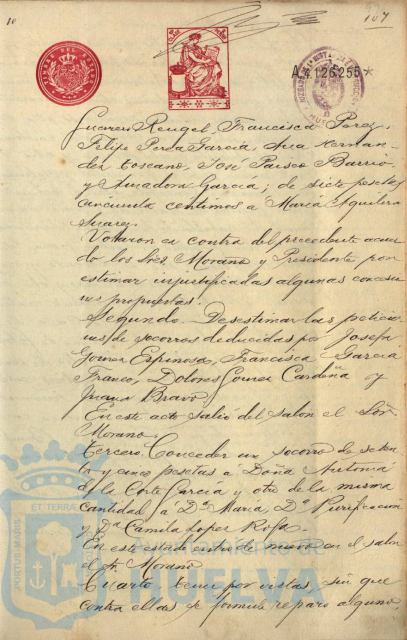 10
107
A.4.126.255*
Guerrero Rengel, Francisca Perez,
Felipe Perda Garcia, Ana Hernan-
dez Toscano, José Barrio
y Amadora Garcia; de siete pesetas
cincuenta centimos a Maria Aguilera
Suarez.
Votaron en contra del precedente acuer-
do los Sres Morano y Presidente por
estimar injustificadas algunas concesio-
nes propuestas.
Segundo. Desestimar las peticio-
nes de socorros deducidas por Josefa
Gomez Espinosa, Francisca Garcia
Franco, Dolores Gomez Cardeña y
Juana Bravo.
En este acto salió del salon el Sor
Morano.
Tercero. Conceder un socorro de seten-
ta y cinco pesetas á Doña Antonia
de la Corte Garcia y otro de la misma
cantidad á Dª Maria, Dª Purificacion
y Dª Camila Lopez Rofa.
En este estado entró de nuevo en el salon
el Sr. Morano.
Cuarto. tener por vistas, sin que
contra ellas se formule reparo alguno,
PORTUS MARIS
ET TERRAE
Ayuntamiento de
HUELVA